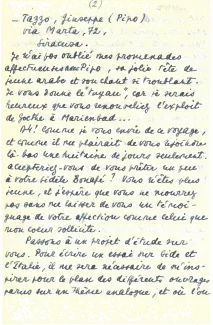 (2)
— Tazzo, Giuseppe (Pipo),
via Marta, 72,
Siracusa.
Je n'ai pas oublié mes promenades
affectueuses avec Pipo, sa jolie tête de
jeune arabe et son chant si troublant.
Je vous donne le "tuyau", car je serais
heureux que vous renouveliez l'exploit
de Goethe à Marienbad...
Ah! Comme je vous envie de ce voyage,
et comme il me plairait de vous rejoindre
là-bas une huitaine de jours seulement.
Accepteriez-vous de vous prêter un peu
à votre fidèle ? Vous n'êtes plus
jeune, et j'espère que vous ne mourrez
pas sans me laisser de vous un témoi-
gnage de votre affection comme celui que
mon cœur sollicite.
Passons à un projet d'étude sur
vous. Pour écrire un essai sur Gide et
l'Italie, il me sera nécessaire de m'ins-
pirer pour le plan des différents ouvrages
parus sur un thème analogue, et où l'on